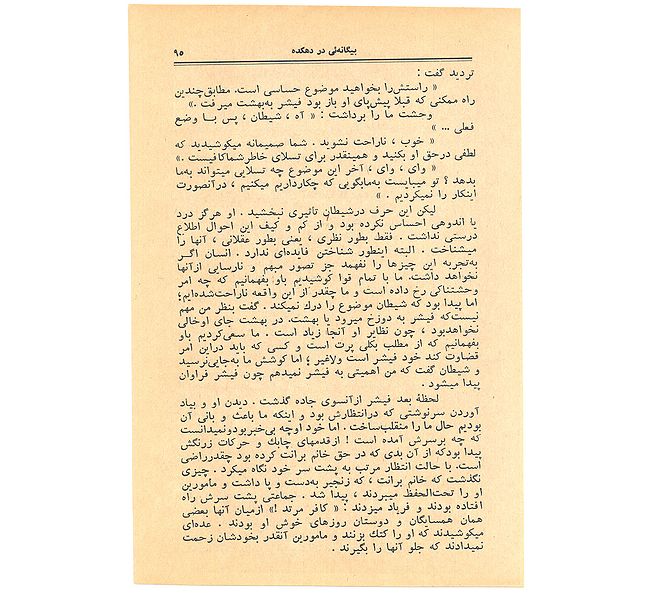 بیگانه‌ئی در دهکده
۹۵
تردید گفت :
« راستش‌را بخواهید موضوع حساسی است. مطابق‌چندین
راه ممکنی که قبلا پیش‌پای او باز بود فیشر به‌بهشت میرفت .»
وحشت ما را برداشت : « آه ، شیطان ، پس بـا وضع
فعلی ... »
« خوب ، ناراحت نشوید . شما صمیمانه میکوشیدید که
لطفی درحق او بکنید و همینقدر برای تسلای خاطرشماکافیست .»
« وای ، وای ، آخر این موضوع چه تسلایی میتواند به‌ما
بدهد ؟ تو میبایست به‌مابگویی که چکارداریم میکنیم ، درآنصورت
اینکار را نمیکردیم . »
لیکن این حرف درشیطان تاثیری نبخشید . او هرگز درد
یا اندوهی احساس نکرده بود و از کم و کیف این احوال اطلاع
درستی نداشت . فقط بطور نظری ، یعنی بطور عقلانی ، آنها را
میشناخت . البته اینطور شناختن فایده‌ای ندارد . انسان اگـر
به‌تجربه این چیزها را نفهمد جز تصور مبهم و نارسایی ازآنها
نخواهد داشت. ما با تمام قوا کوشیدیم باو بفهمانیم که چه امر
وحشتناکی رخ داده است و ما چقدر از این واقعه ناراحت‌شده‌ایم؛
اما پیدا بود که شیطان موضوع را درك نمیکند . گفت بنظر من مهم
نیست‌که فیشر به دوزخ میرود یا بهشت. در بهشت جای اوخالی
نخواهدبود ، چون نظایر او آنجا زیاد است . ما سعی‌کردیم باو
بفهمانیم که از مطلب بکلی پرت است و کسی که باید دراین امر
قضاوت کند خود فیشر است ولاغیر ؛ اما کوشش ما به‌جایی‌نرسید
و شیطان گفت که من اهمیتی به فیشر نمیدهم چون فیشر فراوان
پیدا میشود .
لحظهٔ بعد فیشر ازآنسوی جاده گذشت . دیدن او و بیاد
آوردن سرنوشتی که درانتظارش بود و اینکه ما باعث و بانی آن
بودیم حال ما را منقلب‌ساخت . اما خود اوچه بی‌خبربودونمیدانست
که چه برسرش آمده است ! ازقدمهای چابك و حرکات زرنگش
پیدا بودکه از آن بدی که در حق خانم برانت کرده بود چقدرراضی
است. با حالت انتظار مرتب به پشت سر خود نگاه میکرد . چیزی
نگذشت که خانم برانت ، که زنجیر به‌دست و پا داشت و مامورین
او را تحت‌الحفظ میبردند ، پیدا شد . جماعتی پشت سرش راه
افتاده بودند و فریاد میزدند : « کافر مرتد !» ازمیان آنها بعضی
همان همسایگان و دوستان روزهای خوش او بودند . عده‌ای
میکوشیدند که او را کتك بزنند و مامورین آنقدر بخودشان زحمت
نمیدادند که جلو آنها را بگیرند .